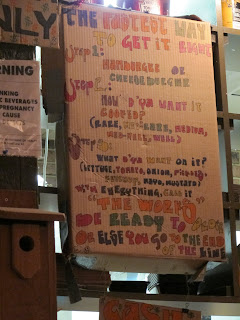 NLY
THE FOOTEST WAY
TO GET IT RIGHT
STEP 1:
HAMBURGER OR
CHEESEBURGER
STEP 2:
HOW D'YA WANT IT
COOKED?
(RARE, MED-RARE, MEDIUM,
MED-WELL, WELL)
STEP 3:
WHAT D'YA WANT ON IT?
(LETTUCE, TOMATO, ONION, PICKLES,
MAYO, MUSTARD)
WITH EVERYTHING, CALL IT
"THE WORKS"
BE READY TO ORDER
OR ELSE YOU GO TO THE END
OF THE LINE
RNING
NKING
BEVERAGES
PREGNANCY
CAUSE
CASH